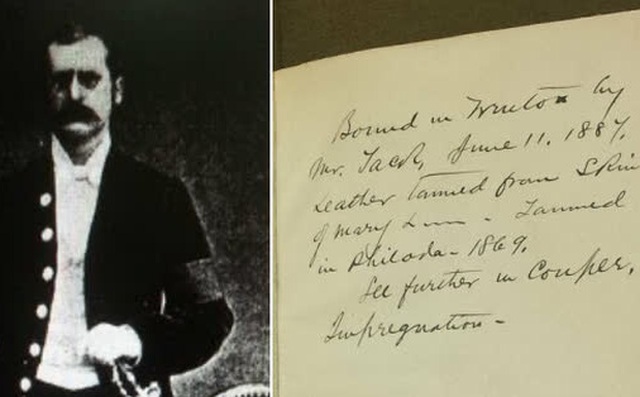 Bound in Trenton by
Mr. Jacob, June 11, 1887.
Leather tanned from Skin
of Mary L—— - Tanned
in Philada - 1869.
See further in Couper,
Impregnation -